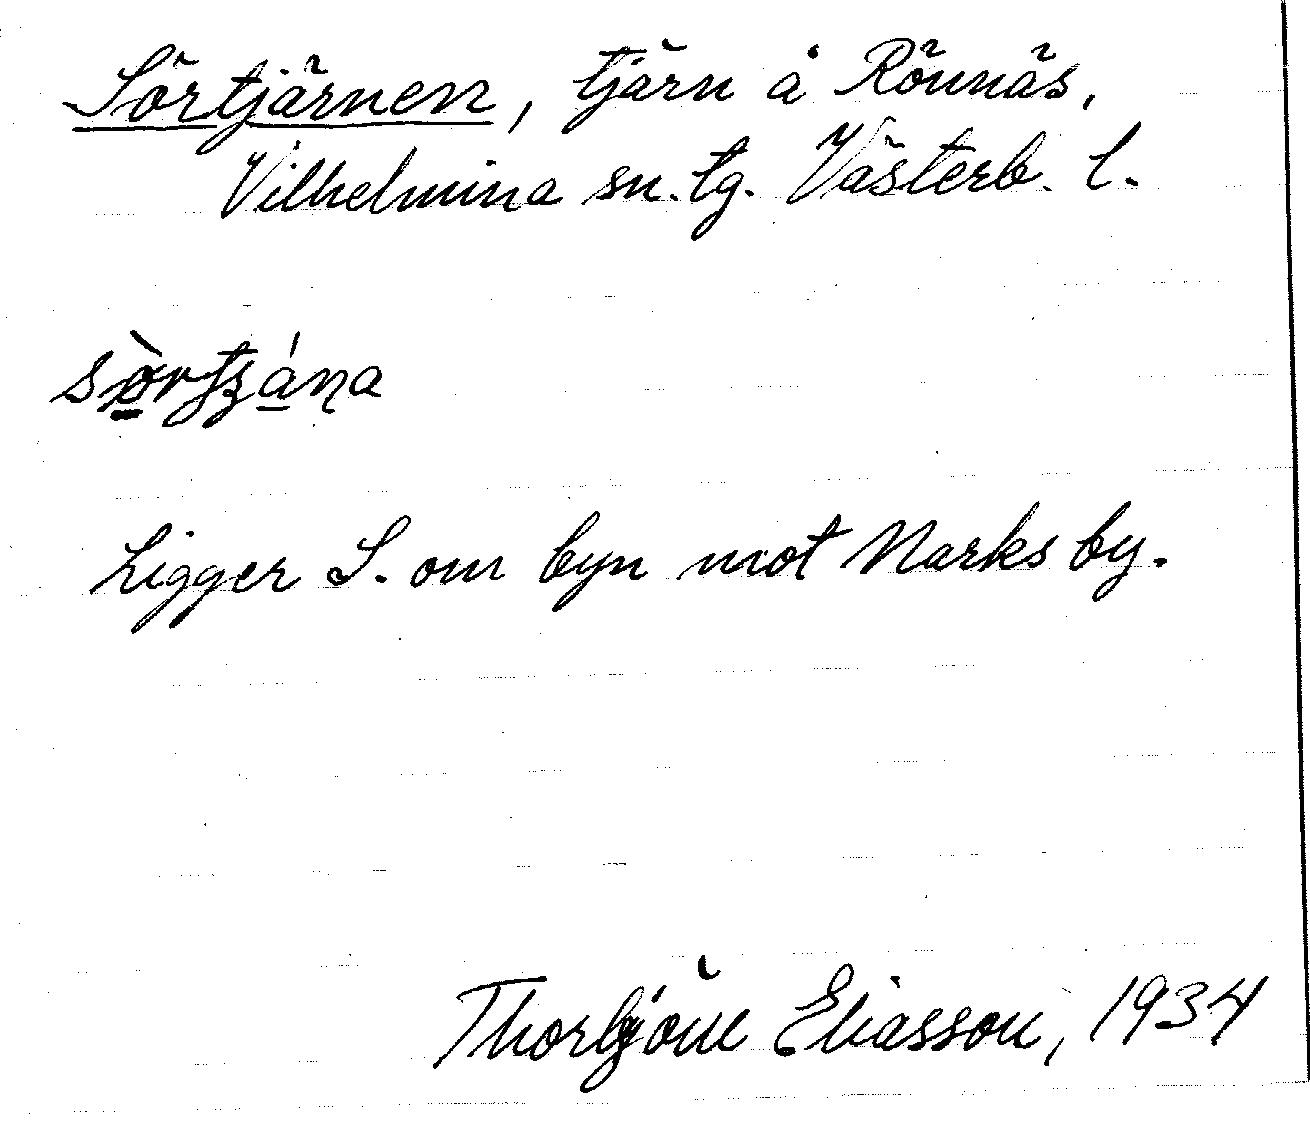 Sörtjärnen, tjärn å Rönnäs,
Vilhelmina sn. tg. Västerb. l.
Ligger S. om byn mot Marksby.
Thorbjörn Eliasson, 1934